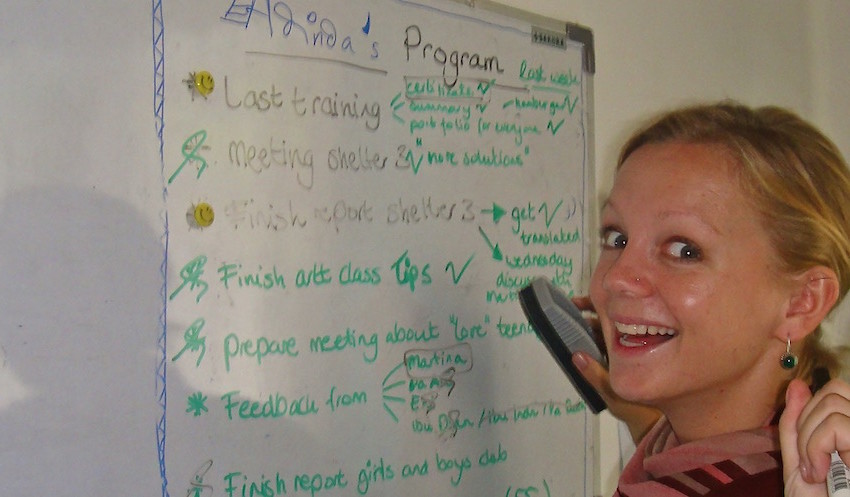 Program
last week
Last training
certificate
summary hamburger
portfolio for everyone
meeting shelter 3 "more solutions"
Finish report shelter 3 get
translated
wednesday
Finish art class Tips
prepare meeting about "love"
Feedback from
martina
Finish report girls and boys club